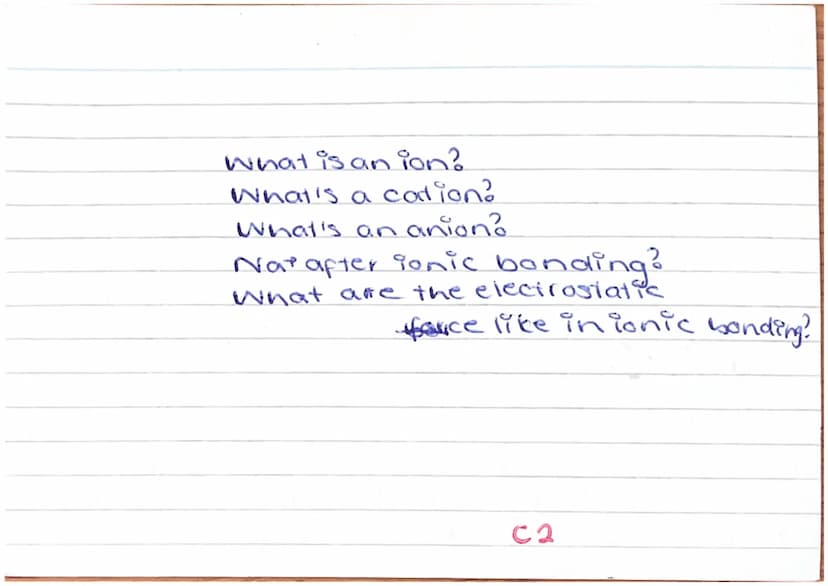 What is an ion?
What's a cation?
What's an anion?
Na⁺ after ionic bonding?
What are the electrostatic
force like in ionic bonding?
C2